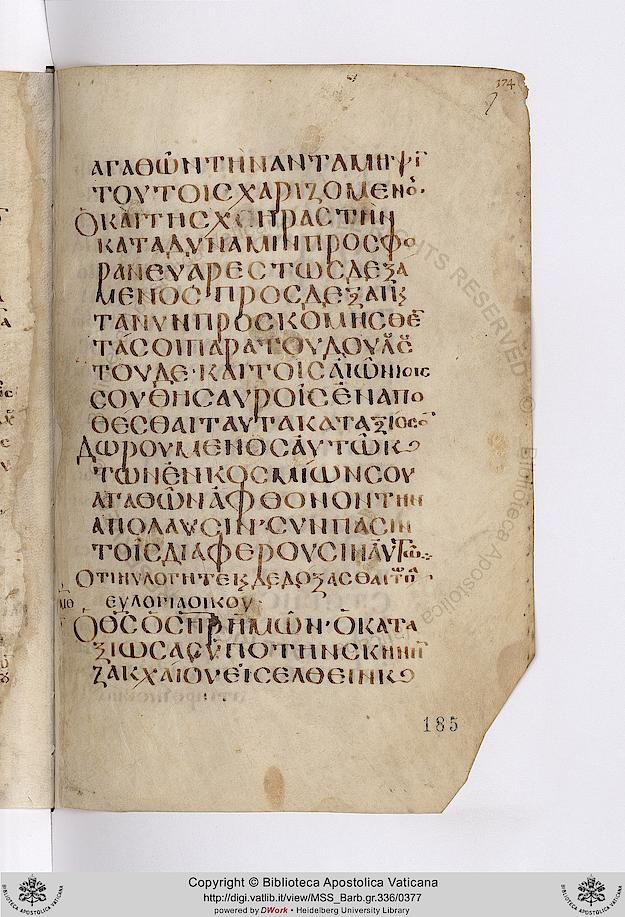 374
ΑΓΑΘΩΝΤΗΝΑΝΤΑΜΗΨῙ
ΤΟΥΤΟΙΣΧΑΡΙΖΟΜΕΝο·
ΟΚΑΙΤΗΣΧΗΡΑΣΤΗΝ
ΚΑΤΑΔΥΝΑΜΙΝΠΡΟΣΦΟ
ΡΑΝΕΥΑΡΕΣΤΩΣΔΕΞΑ
ΜΕΝΟΣ·ΠΡΟΣΔΕΞΑΙϗ
ΤΑΝΥΝΠΡΟΣΚΟΜΗΣΘΕ̄
ΤΑΣΟΙΠΑΡΑΤΟΥΔΟΥΛ
ΤΟΥΔΕ·ΚΑΙΤΟΙΣΑΙΩΝΙΟΙΣ
ΣΟΥΘΗΣΑΥΡΟΙΣΕΝΑΠΟ
ΘΕΣΘΑΙΤΑΥΤΑΚΑΤΑΞΙΟΣΟ̄
ΔΩΡΟΥΜΕΝΟΣΑΥΤΩΚ
ΤΩΝΕΝΚΟΣΜΙΩΝΣΟΥ
ΑΓΑΘΩΝΑΦΘΟΝΟΝΤΗΝ
ΑΠΟΛΑΥΣΙΝ·ΣΥΝΠΑΣΙΝ
ΤΟΙΣΔΙΑΦΕΡΟΥΣΙΝΑΥΤΩ·
ΟΤΙΗΥΛΟΓΗΤΕϗΔΕΔΟΞΑΣΘΑΙΤΟ
ΕΥΛΟΓΙΑΟΙΚΟΥ
ΟΘΣΟΣΗΡΗΜΩΝ·ΟΚΑΤΑ
ΞΙΩΣΑΣΥΠΟΤΗΝΣΚΗΝΗ̄
ΖΑΚΧΑΙΟΥΕΙΣΕΛΘΕΙΝΚ
185
RIGHTS RESERVED
© Biblioteca Apostolica
Copyright © Biblioteca Apostolica Vaticana
http://digi.vatlib.it/view/MSS_Barb.gr.336/0377
powered by DWork • Heidelberg University Library